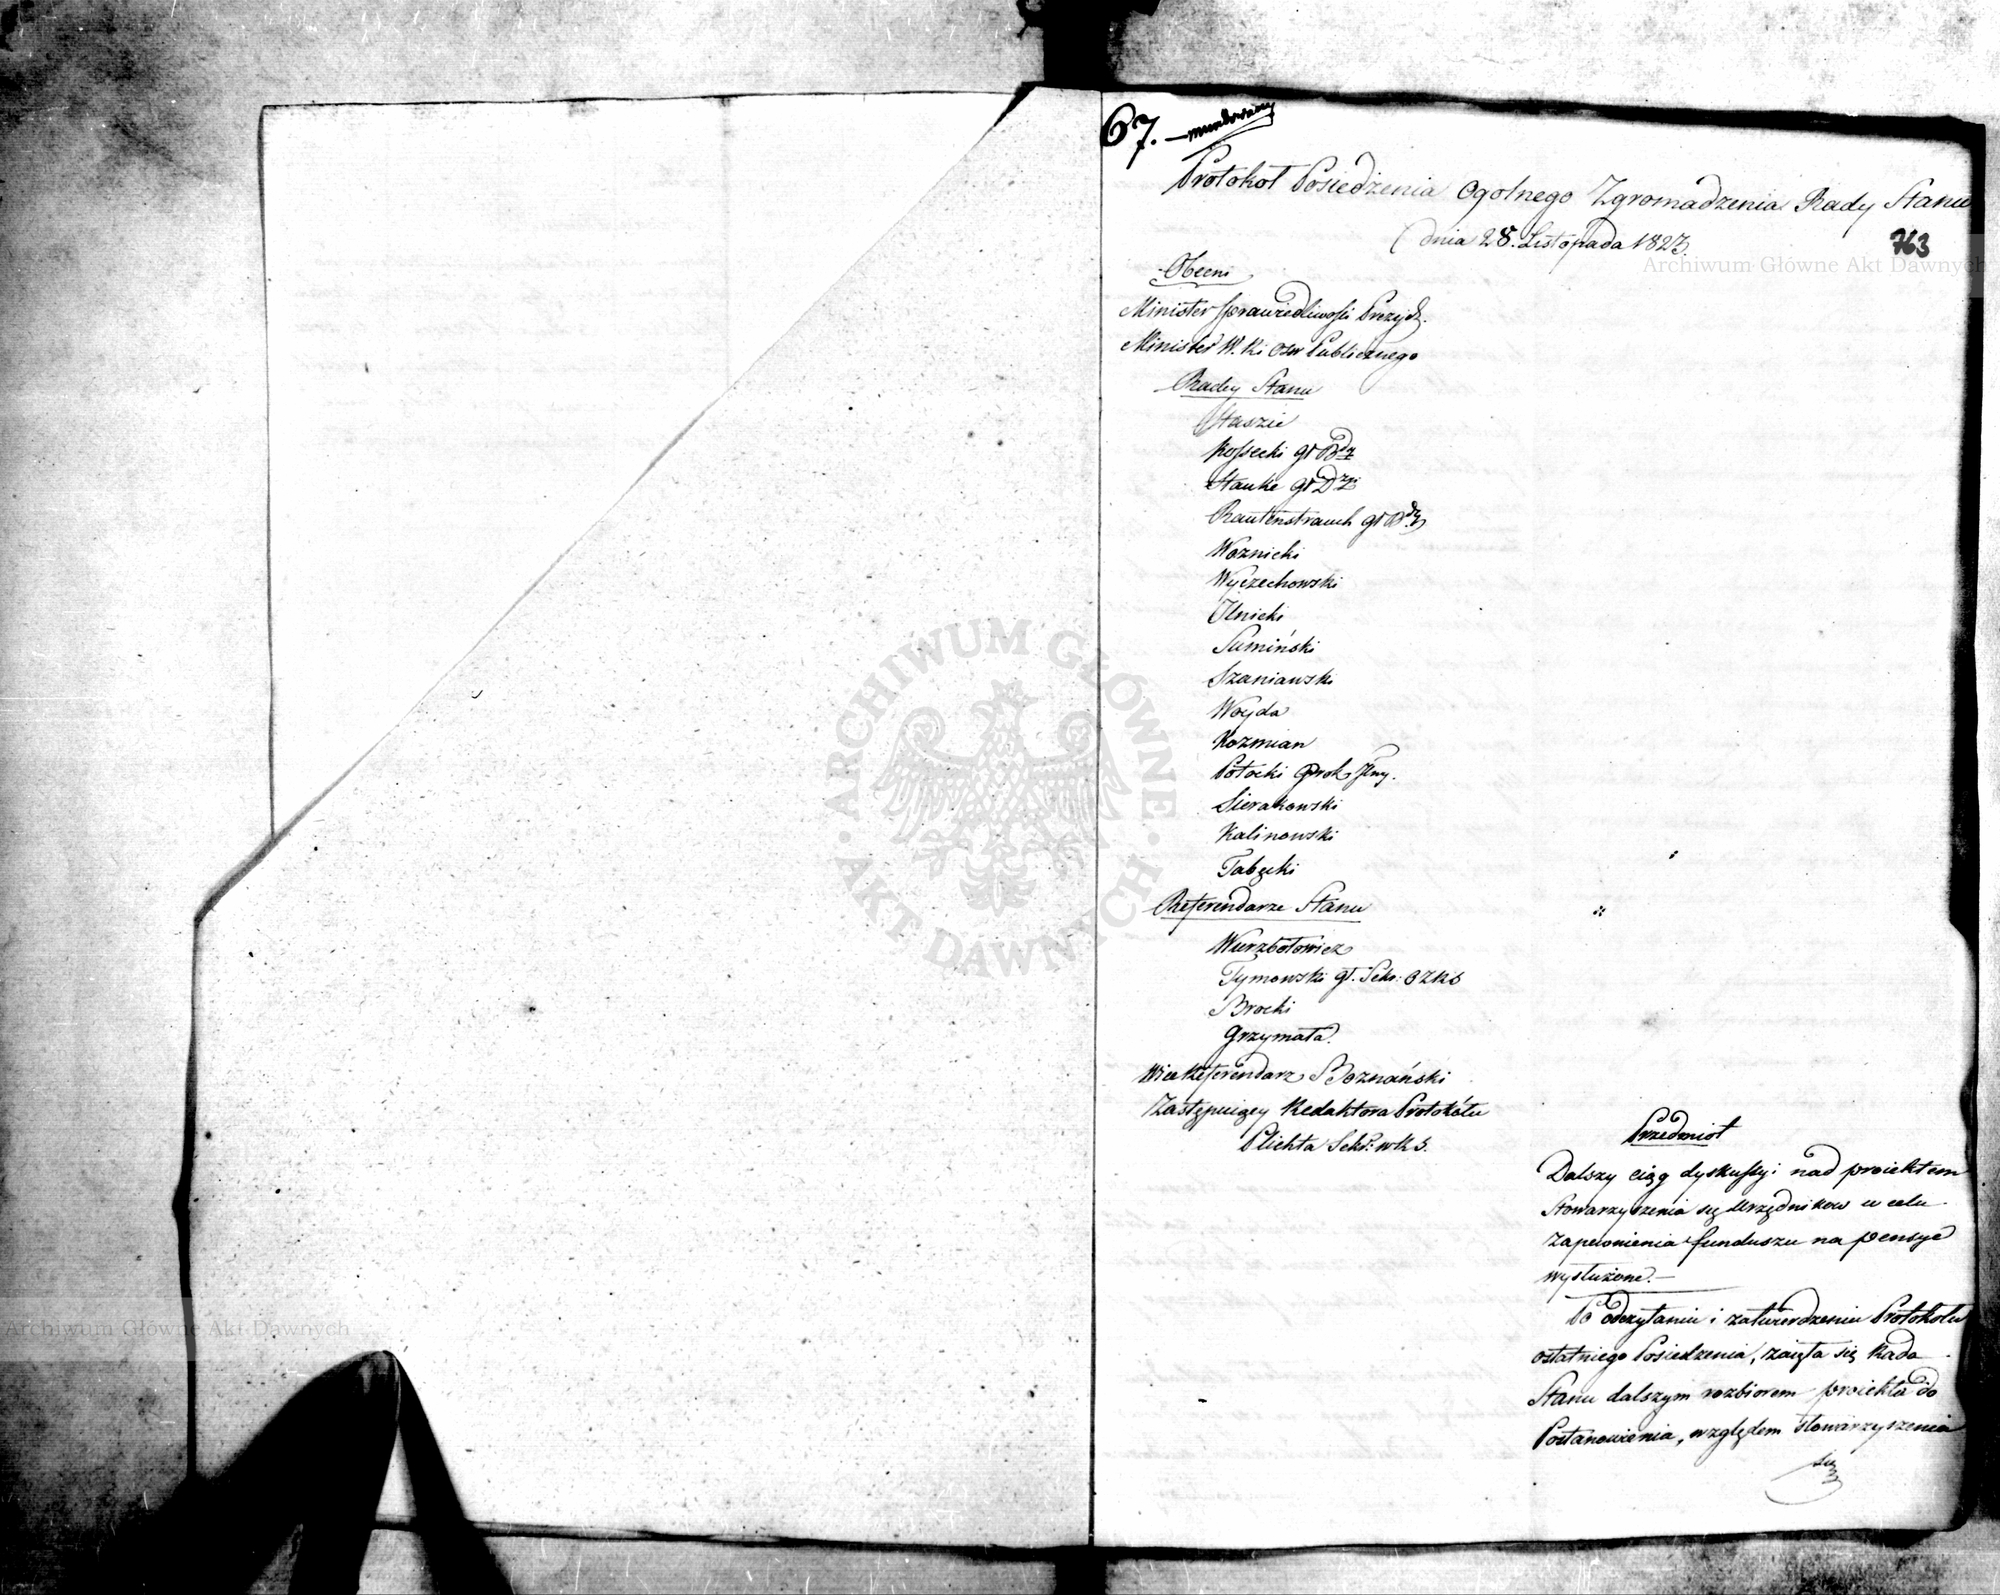 67. mundowany
Protokoł Posiedzenia Ogolnego Zgromadzenia Rady Stanu
dnia 28. Listopada 1823.
763
Archiwum Główne Akt Dawnych
Obecni
Minister Sprawiedliwości Prezyd.
Minister W. R. i Osw Publicznego
Radcy Stanu
Staszic
Kossecki gł
Hauke gł
Rautenstrauch gł
Woznicki
Wyczechowski
Ilnicki
Sumiński
Szaniawski
Woyda
Kozmian
Potocki Prok Jlny.
Sierakowski
Kalinowski
Tabęcki
Referendarze Stanu
Wurzbołowicz
Tymowski gł. Sekr.
Brocki
Grzymała.
Wice Referendarz Boznański
Zastępuiący Redaktora Protokółu
Plichta Sekr. w R S.
Przedmiot
Dalszy ciąg dyskussyi nad proiektem
Stowarzyszenia się Urzędnikow w celu
Zapewnienia funduszu na pensye
wysłużone.—
Po odczytaniu i zatwierdzeniu Protokołu
ostatniego Posiedzenia, zaięła się Rada
Stanu dalszym rozbiorem proiektu do
Postanowienia, względem stowarzyszenia
się
ARCHIWUM GŁÓWNE
AKT DAWNYCH
Archiwum Główne Akt Dawnych